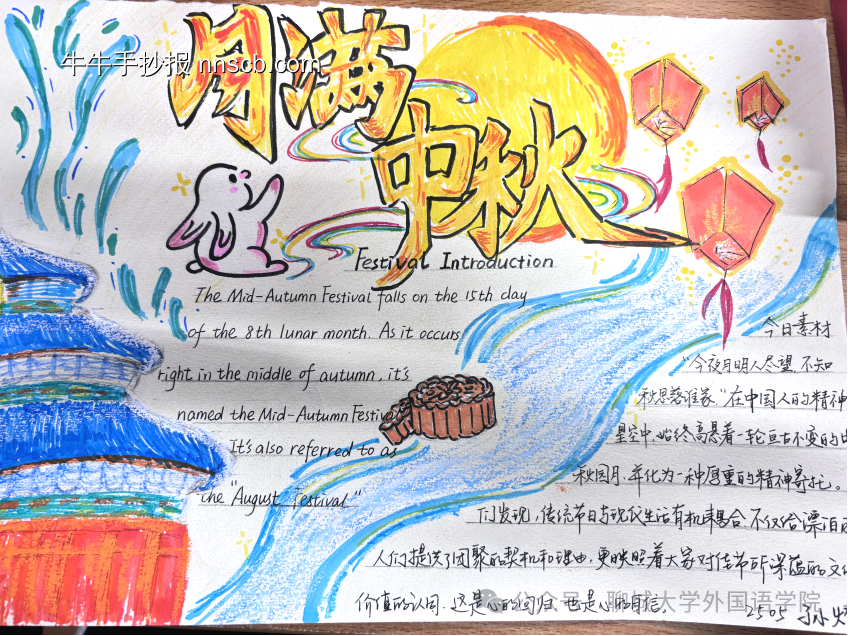 月满
中秋
牛牛手抄报 nnscb.com
Festival Introduction
The Mid-Autumn Festival falls on the 15th day
of the 8th lunar month. As it occurs
right in the middle of autumn, it's
named the Mid-Autumn Festival
It's also referred to as
the "August Festival"
今日素材
"今夜月明人尽望,不知
秋思落谁家"在中国人的精神
星空中,始终高悬着一轮亘古不变的
秋圆月,年化为一种厚重的精神寄托。
们发现,传统节日与现代生活有机耦合,不仅给漂泊
人们提供了团聚的契机和理由,更映照着大家对佳节所深蕴的文
价值的认同,这是心的回归,也是心的自信。
公众号 聊城大学外国语学院
2505 孙